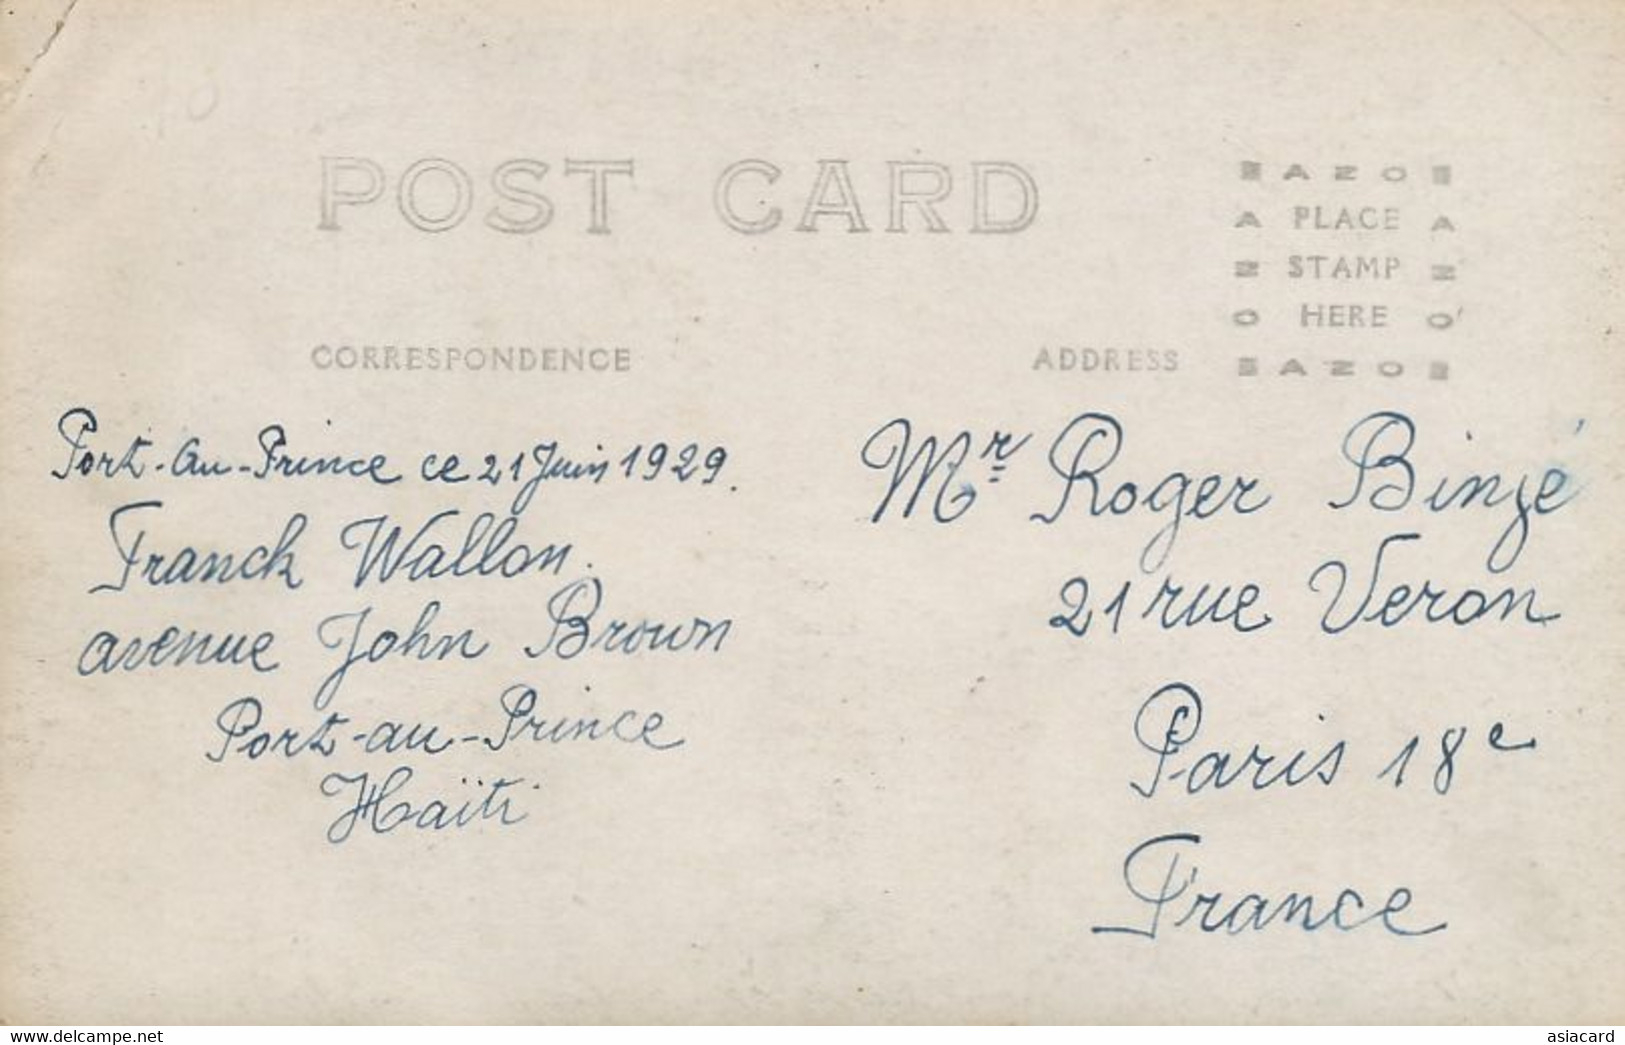 POST CARD
AZO
A PLACE A
Z STAMP Z
O HERE O
AZO
CORRESPONDENCE
ADDRESS
Port-au-Prince ce 21 Juin 1929.
Franck Wallon.
avenue John Brown
Port-au-Prince
Haïti
Mr Roger Binzé
21 rue Veron
Paris 18e
France
www.delcampe.net
asiacard